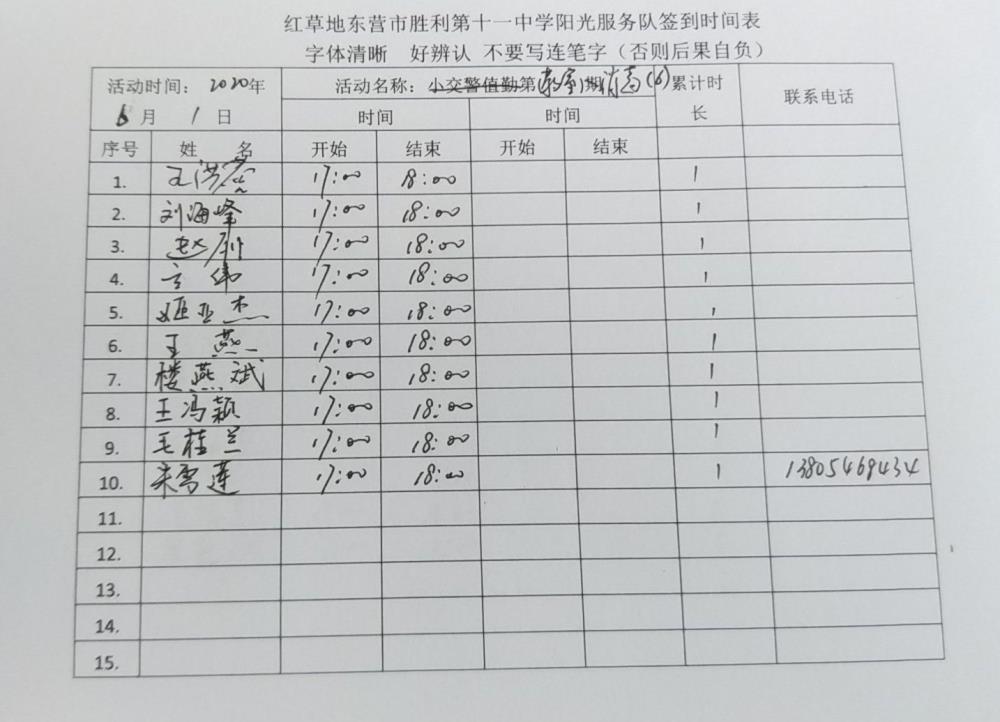 红草地东营市胜利第十一中学阳光服务队签到时间表
字体清晰 好辨认 不要写连笔字（否则后果自负）
活动时间： 2020年 活动名称：小交警值勤第(教室)期消毒(6) 累计时长 联系电话
6月 1日 时间 时间
序号 姓 名 开始 结束 开始 结束
1. 17:00 18:00 1
2. 刘海峰 17:00 18:00 1
3. 赵 17:00 18:00 1
4. 伟 17:00 18:00 1
5. 姬亚杰 17:00 18:00 1
6. 王 燕 17:00 18:00 1
7. 楼燕斌 17:00 18:00 1
8. 王冯颖 17:00 18:00 1
9. 王桂兰 17:00 18:00 1
10. 朱雪莲 17:00 18:00 1 13805469434
11.
12.
13.
14.
15.